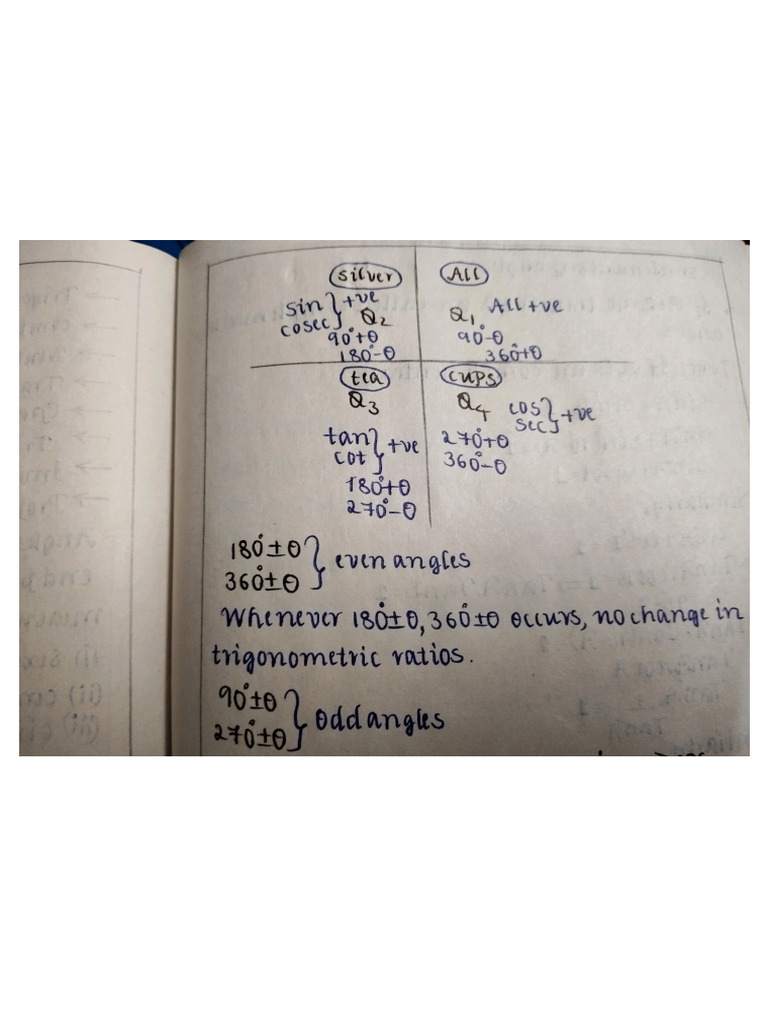 silver
sin } +ve
cosec Q2
90°+θ
180°-θ
All
Q1 All +ve
90°-θ
360°+θ
tea
Q3
tan } +ve
cot
180°+θ
270°-θ
cups
Q4 cos } +ve
sec
270°+θ
360°-θ
180°±θ } even angles
360°±θ
Whenever 180°±θ, 360°±θ occurs, no change in
trigonometric ratios.
90°±θ } odd angles
270°±θ